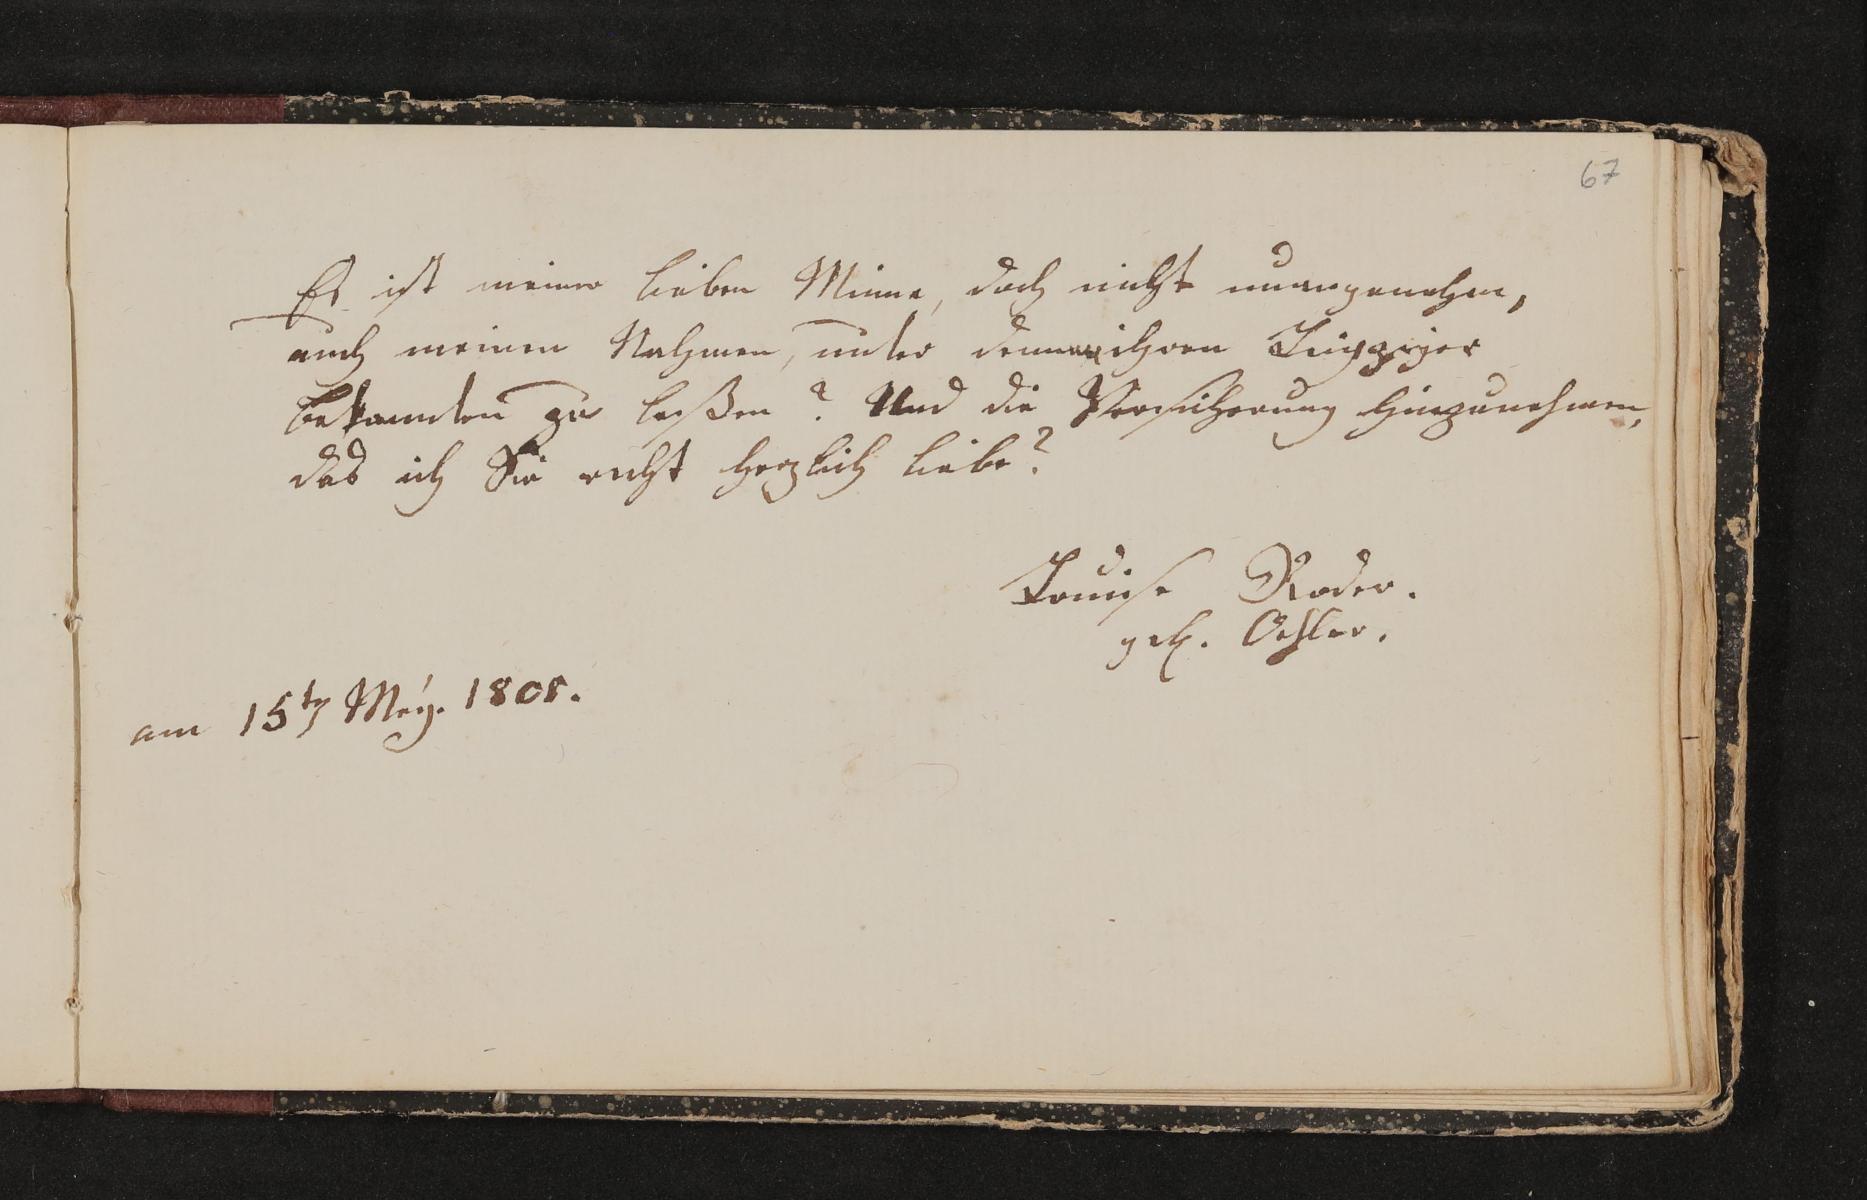 67
Es ist meiner lieben Minna, doch nicht unangenehm,
auch meinen Nahmen, unter denen ihren Leipziger
bekannten zu leßen? Und die Versicherung hinzunehmen,
das ich Sie recht herzlich liebe?
Louise Roder.
geb. Oehler.
am 15ty May. 1808.